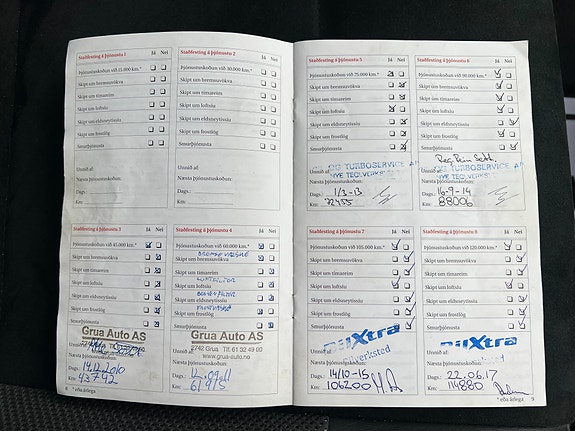 Staðfesting á þjónustu 1 Já Nei
Þjónustuskoðun við 15.000 km.*
Skipt um bremsuvökva
Skipt um tímareim
Skipt um loftsíu
Skipt um eldsneytissíu
Skipt um frostlög
Smurþjónusta
Unnið af:
Næsta þjónustuskoðun:
Dags.:
Km:
Staðfesting á þjónustu 2 Já Nei
Þjónustuskoðun við 30.000 km.*
Skipt um bremsuvökva
Skipt um tímareim
Skipt um loftsíu
Skipt um eldsneytissíu
Skipt um frostlög
Smurþjónusta
Unnið af:
Næsta þjónustuskoðun:
Dags.:
Km:
Staðfesting á þjónustu 3 Já Nei
Þjónustuskoðun við 45.000 km.*
Skipt um bremsuvökva
Skipt um tímareim
Skipt um loftsíu
Skipt um eldsneytissíu
Skipt um frostlög
Smurþjónusta
Grua Auto AS
2742 Grua Tlf. 61 32 49 00
14.12.2010
43792
8 * eða árlega
Staðfesting á þjónustu 4 Já Nei
Þjónustuskoðun við 60.000 km.*
Skipt um bremsuvökva
Skipt um tímareim
Skipt um loftsíu
Skipt um eldsneytissíu
Skipt um frostlög
Smurþjónusta
Grua Auto AS
2742 Grua Tlf. 61 32 49 00
www.grua-auto.no
Unnið af:
Dags.:
Km:
Staðfesting á þjónustu 5 Já Nei
Þjónustuskoðun við 75.000 km.*
Skipt um bremsuvökva
Skipt um tímareim
Skipt um loftsíu
Skipt um eldsneytissíu
Skipt um frostlög
Smurþjónusta
Unnið af:
TURBOSERVICE
Næsta þjónustuskoðun:
Dags.: 1/3-13
Km:
Staðfesting á þjónustu 6 Já Nei
Þjónustuskoðun við 90.000 km.*
Skipt um bremsuvökva
Skipt um tímareim
Skipt um loftsíu
Skipt um eldsneytissíu
Skipt um frostlög
Smurþjónusta
Unnið af:
TURBOSERVICE
Næsta þjónustuskoðun:
Dags.: 16-9-14
Km: 88006
Staðfesting á þjónustu 7 Já Nei
Þjónustuskoðun við 105.000 km.*
Skipt um bremsuvökva
Skipt um tímareim
Skipt um loftsíu
Skipt um eldsneytissíu
Skipt um frostlög
Smurþjónusta
BilXtra
Unnið af:
Dags.: 14/10-15
Km: 106200
Staðfesting á þjónustu 8 Já Nei
Þjónustuskoðun við 120.000 km.*
Skipt um bremsuvökva
Skipt um tímareim
Skipt um loftsíu
Skipt um eldsneytissíu
Skipt um frostlög
Smurþjónusta
BilXtra
Unnið af:
Dags.: 22.06.17
Km: 114880
* eða árlega 9